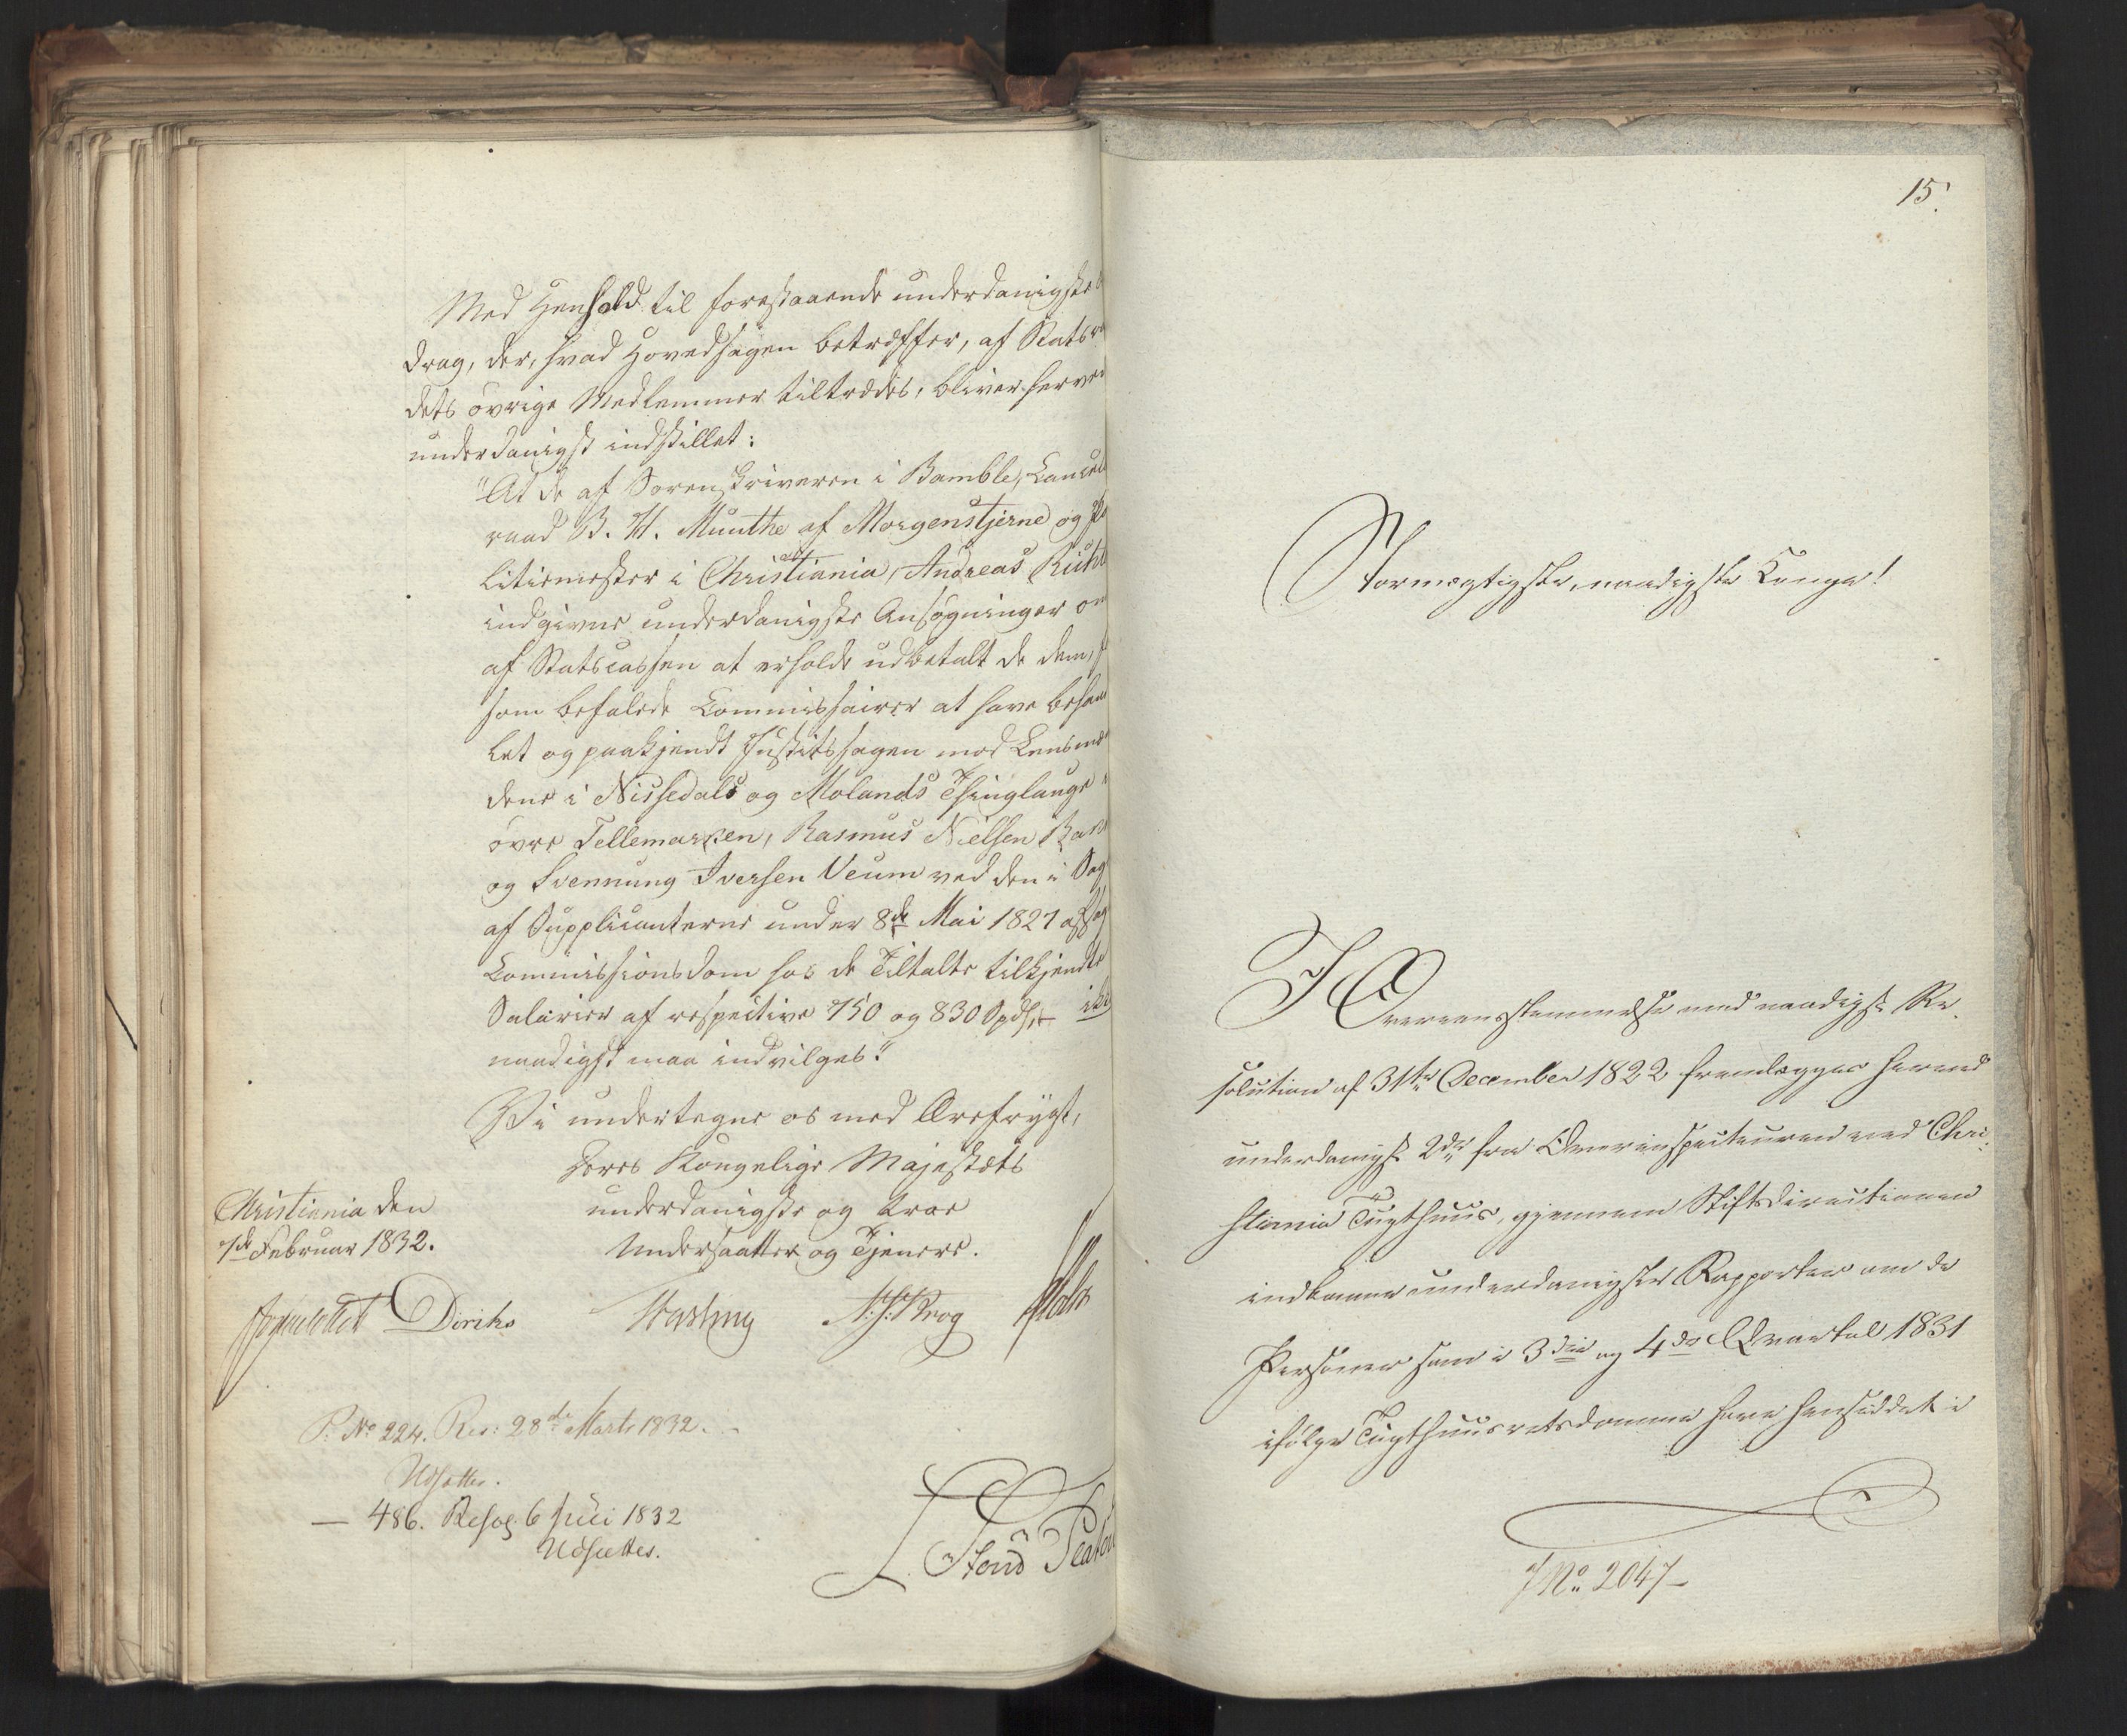 Med Henhold til forestaaende underdanigste
drag, der, hvad Hovedsagen betræffer, af Statsr
dets övrige Medlemmer tiltrædes, bliver herved
underdanigst indstillet:
"At de af Sorenskriveren i Bamble, Cancel
raad B. M. Munthe af Morgenstjerne og Po
litiemester i Christiania, Andreas Rich
indgivne underdanigste Ansögninger om
af Statscassen at erholde udbetalt de dem,
som befalede Commissairer at have behand
let og paakjendt Justitssagen mod Lensmæ
dene i Nissedals og Molands Thinglauge i
övre Tellemarken, Rasmus Nielsen
og Svennung Iversen Veum ved den i Sag
af Supplicanterne under 8de Mai 1827 afsag
Commissionsdom hos de Tiltalte tilkjendte
Salarier af respective 750 og 830 Spd, ikke
naadigst maa indvilges."
Vi undertegne os med Ærefrygt,
Deres Kongelige Majestæts
underdanigste og troe
Undersaatter og Tjenere.
Christiania den
1ste Februar 1832.
Diriks
P. No 224. Res: 28de Marts 1832.
Udsættes.
— 486. Resol. 6 Juli 1832
Udsættes.
15.
Stormægtigste, naadigste Konge!
I Overeensstemmelse med naadigst Re-
solution af 31te December 1822 fremlægges herved
underdanigst 2de fra Overinspecteuren ved Chri-
stiania Tugthuus, gjennem Stiftsdirectionen
indkomne underdanigste Rapporter om de
Personer som i 3die og 4de Qvartal 1831
ifölge Tugthuusretsdomme have hensiddet i
JNo. 2047